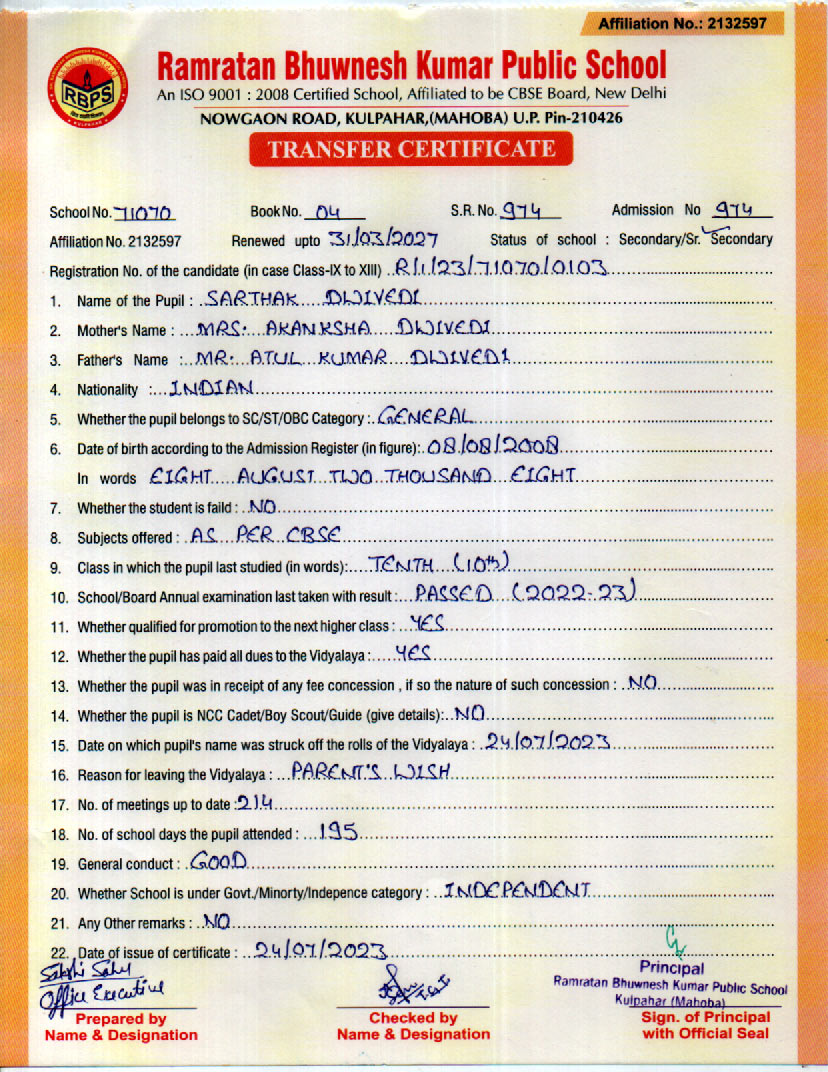 Affiliation No.: 2132597
RBPS
KULPAHAR
Ramratan Bhuwnesh Kumar Public School
An ISO 9001 : 2008 Certified School, Affiliated to be CBSE Board, New Delhi
NOWGAON ROAD, KULPAHAR,(MAHOBA) U.P. Pin-210426
TRANSFER CERTIFICATE
School No. 71070 Book No. 04 S.R. No. 974 Admission No 974
Affiliation No. 2132597 Renewed upto 31/03/2027 Status of school : Secondary/Sr. Secondary
Registration No. of the candidate (in case Class-IX to XIII) R/1/23/71070/0103
1. Name of the Pupil : SARTHAK DWIVEDI
2. Mother's Name : MRS. AKANKSHA DWIVEDI
3. Father's Name : MR. ATUL KUMAR DWIVEDI
4. Nationality : INDIAN
5. Whether the pupil belongs to SC/ST/OBC Category : GENERAL
6. Date of birth according to the Admission Register (in figure): 08/08/2008
In words EIGHT AUGUST TWO THOUSAND EIGHT
7. Whether the student is faild : NO
8. Subjects offered : AS PER CBSE
9. Class in which the pupil last studied (in words): TENTH (10th)
10. School/Board Annual examination last taken with result : PASSED (2022-23)
11. Whether qualified for promotion to the next higher class : YES
12. Whether the pupil has paid all dues to the Vidyalaya : YES
13. Whether the pupil was in receipt of any fee concession , if so the nature of such concession : NO
14. Whether the pupil is NCC Cadet/Boy Scout/Guide (give details): NO
15. Date on which pupil's name was struck off the rolls of the Vidyalaya : 24/07/2023
16. Reason for leaving the Vidyalaya : PARENT'S WISH
17. No. of meetings up to date : 214
18. No. of school days the pupil attended : 195
19. General conduct : GOOD
20. Whether School is under Govt./Minorty/Indepence category : INDEPENDENT
21. Any Other remarks : NO
22. Date of issue of certificate : 24/07/2023
Sakshi Sahu
Office Executive
Prepared by
Name & Designation
Checked by
Name & Designation
Principal
Ramratan Bhuwnesh Kumar Public School
Kulpahar (Mahoba)
Sign. of Principal
with Official Seal